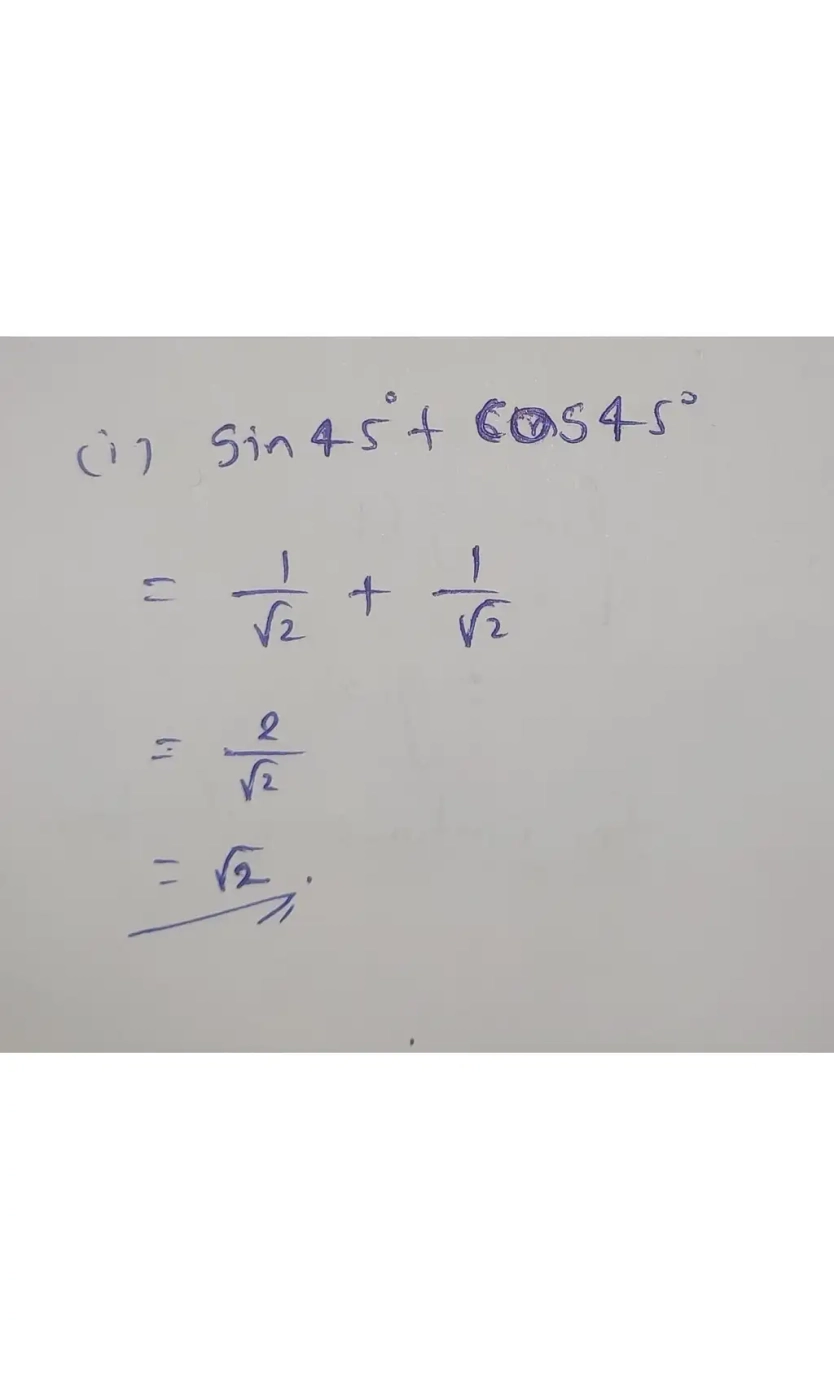 (i) Sin 45° + Cos 45°
= 1/√2 + 1/√2
= 2/√2
= √2 .